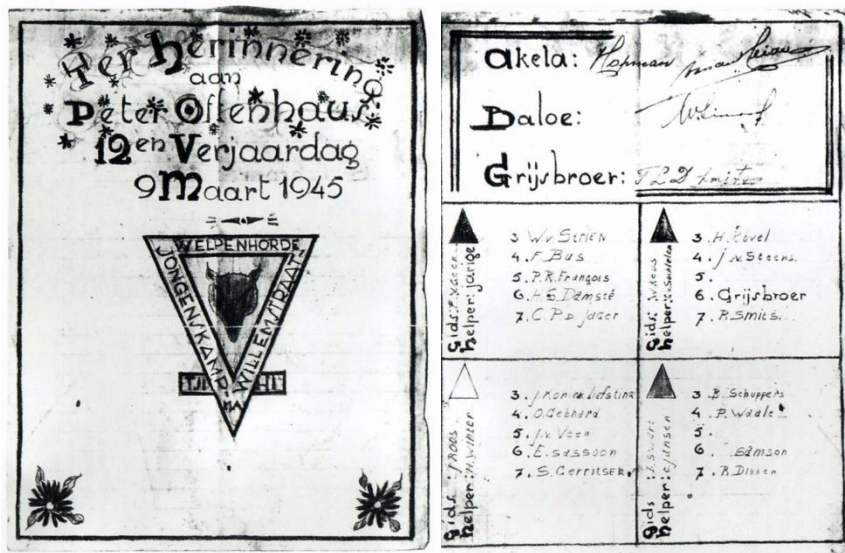 Ter herinnering
aan
Peter Oltenhaus'
12en Verjaardag
9 Maart 1945
WELPENHORDE
JONGENSKAMP
WILLEMSTRAAT
Akela: Hopman
Baloe:
Grijsbroer: T L D Smits
Gids:
helper: jarige
3 W.v. Strien
4. F. Bus
5. P.R. François
6. H.S. Damsté
7. C.P.D. Jager
Gids:
helper:
3. H. Hovel
4. J.v. Steens
5.
6. Grijsbroer
7. R. Smits.
Gids: J Roos
helper: H. Winter
3. J. Konink Liefsting
4. O. Gebhard
5. J.v. Veen
6. E. Sassoon
7. S. Gerritsen
Gids:
helper: C. Jansen
3 B. Schuppers
4. P. Waale
5.
6. Samson
7. R. Dibben